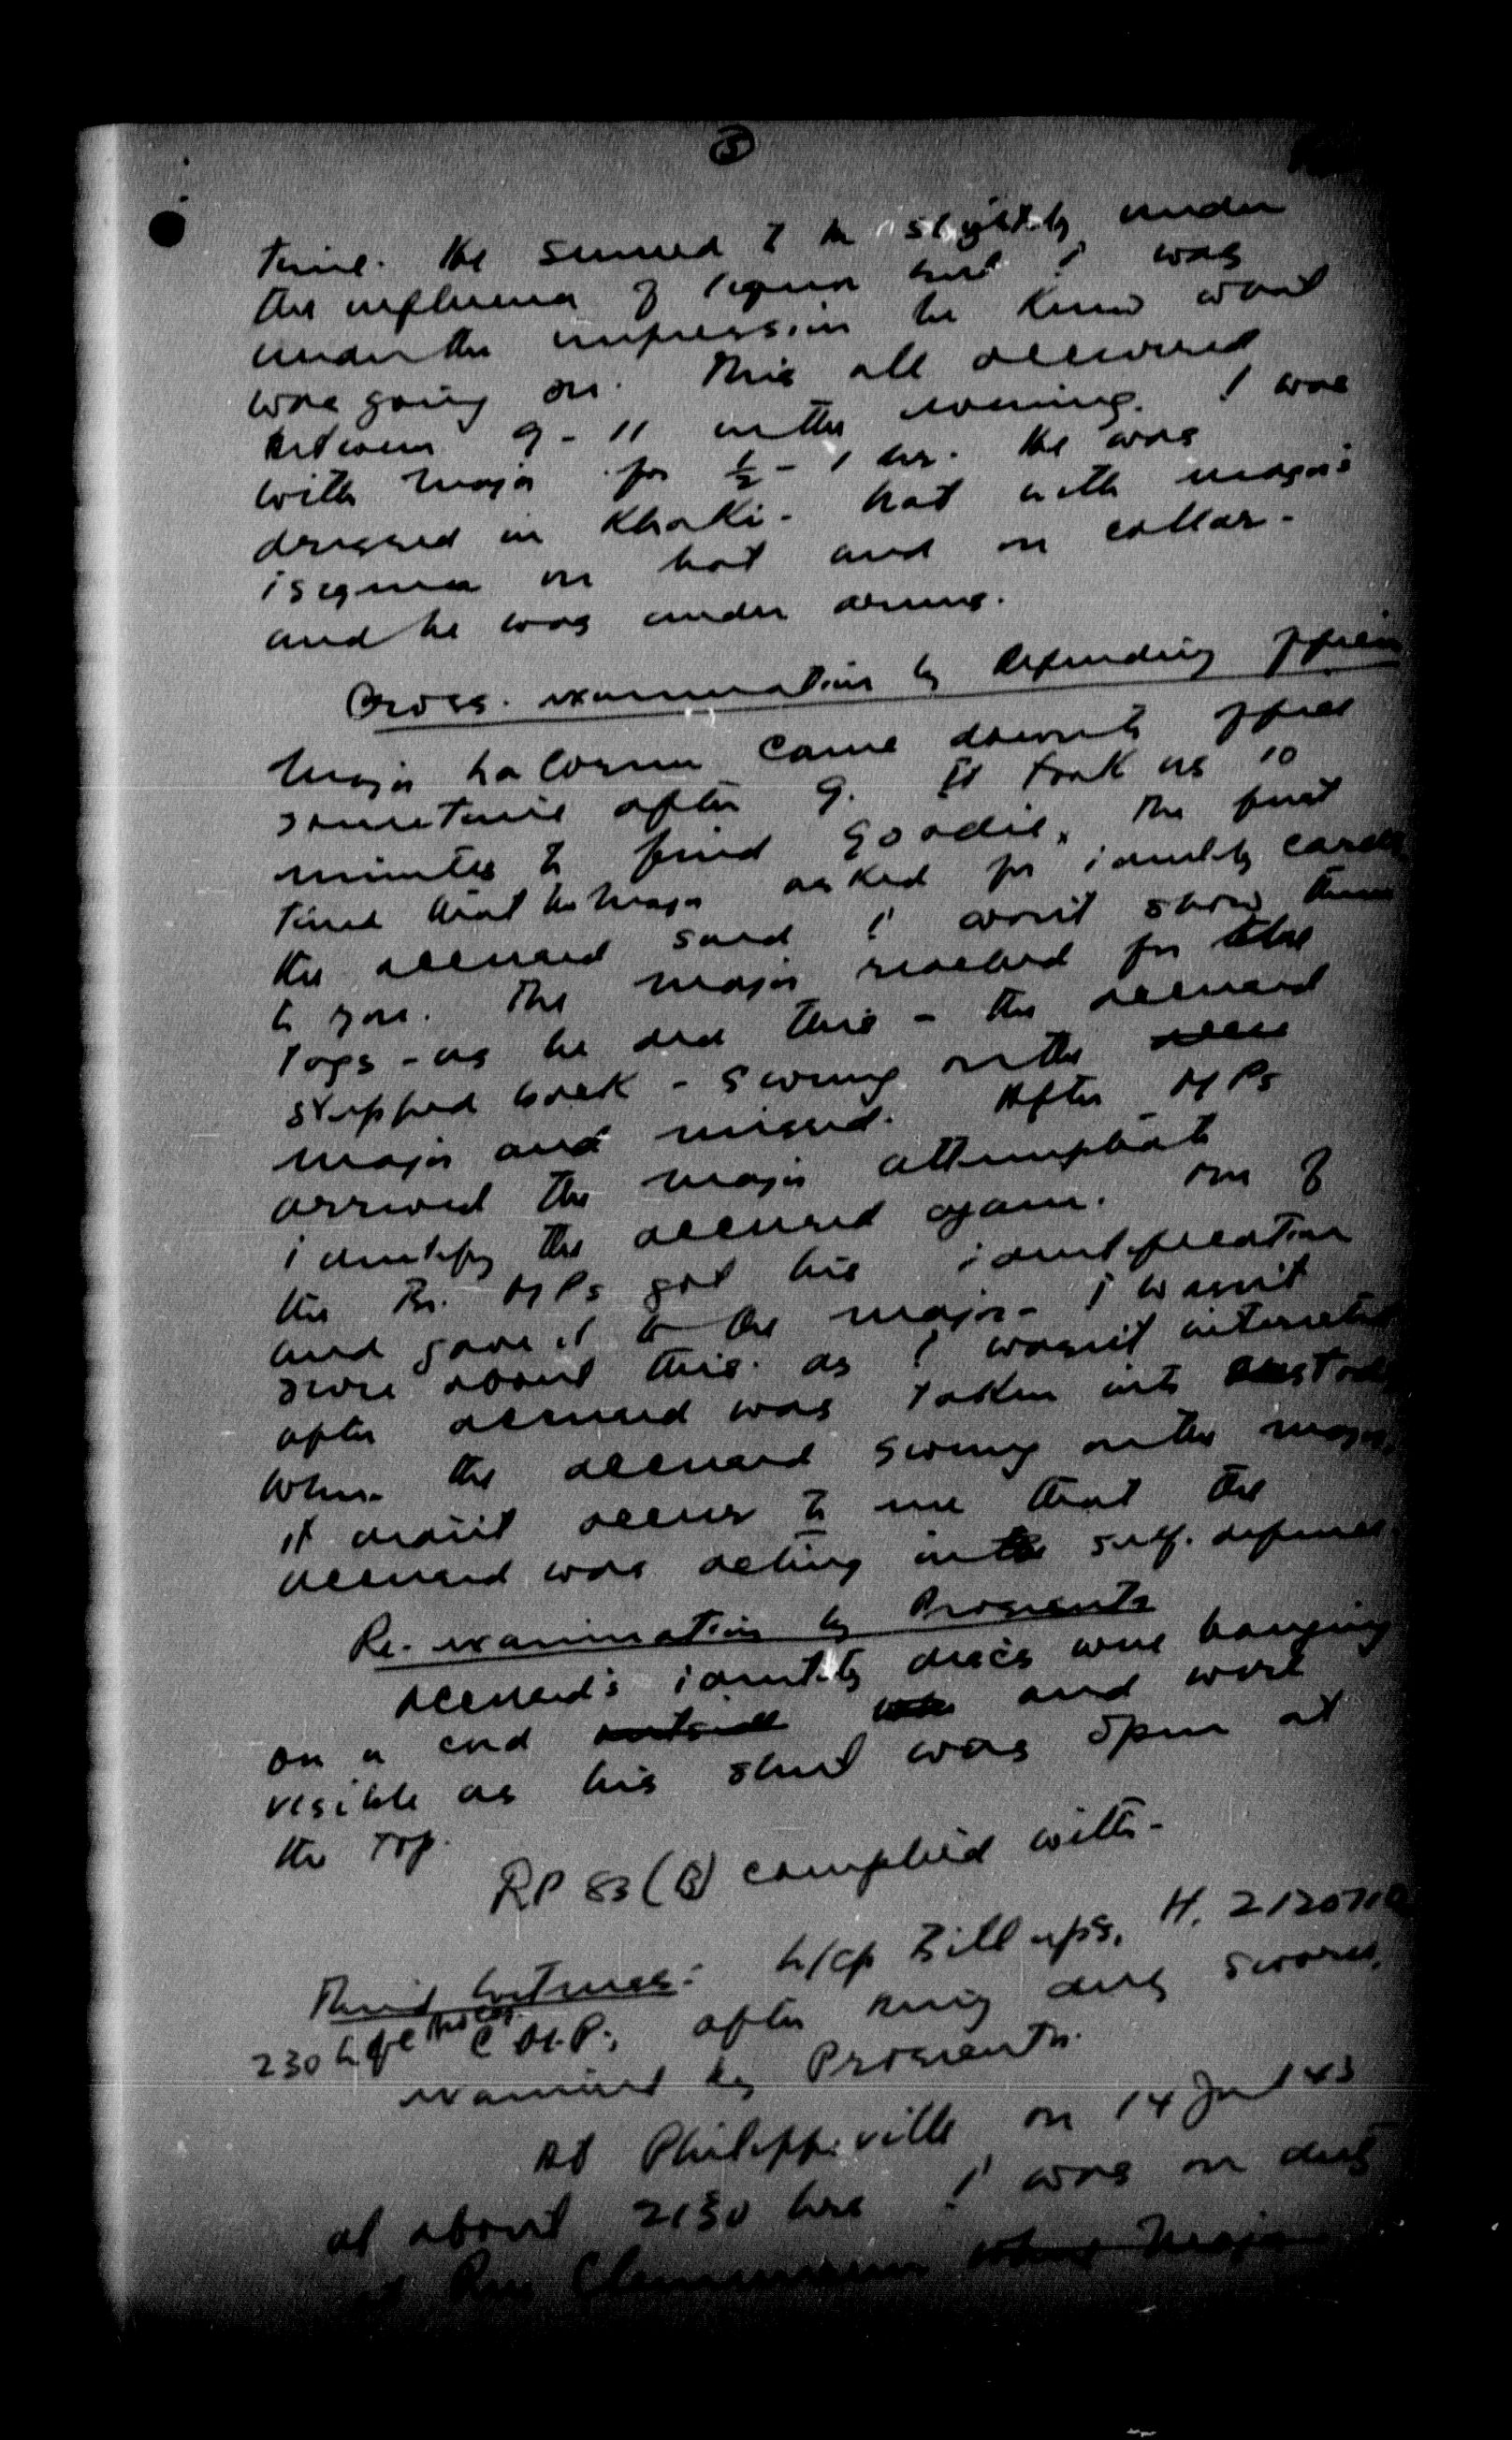 5
time. He seemed to be slightly under
the influence of liquor but I was
under the impression he knew what
was going on. This all occurred
between 9 - 11 in the evening. I was
with Major for ½ - 1 hr. He was
dressed in Khaki - hat with major's
isignia on hat and on collar -
and he was under arms.
Cross-examination by Defending Officer
Major came down to office
sometime after 9. It took us 10
minutes to find Goodie. The first
time that the Major asked for identity cards
the accused said I won't show them
to you. The major reached for the
tags - as he did this - the accused
stepped back - swung on the
major and missed. After MPs
arrived the major attempted to
identify the accused again. One of
the Br. MPs got his identification
and gave it to the major - I wasn't
sure about this as I wasn't interested
after accused was taken into custody
When the accused swung on the major,
it didn't occur to me that the
accused was acting in self-defence.
Re-examination by Prosecutor
Accused's identity discs were hanging
on a cord outside and were
visible as his shirt was open at
the top.
RP 83 (B) complied with -
Third Witness: L/Cp Billups, H.
230 C.M.P., after being duly sworn,
examined by Prosecutor.
At Philippeville on 14 43
at about 2130 hrs I was on duty
at Rue Clemenceau when Major